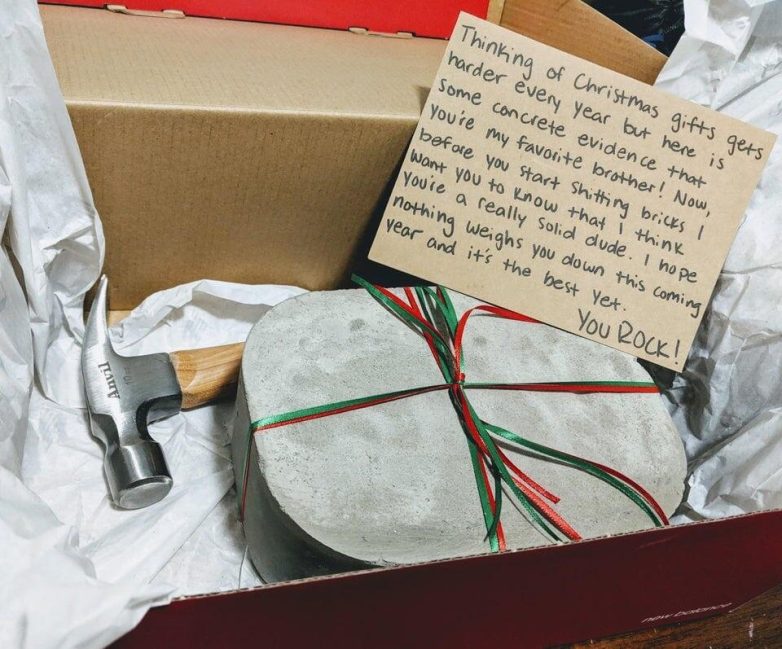 Thinking of Christmas gifts gets
harder every year but here is
some concrete evidence that
you're my favorite brother! Now,
before you start shitting bricks I
want you to know that I think
you're a really solid dude. I hope
nothing weighs you down this coming
year and it's the best yet.
You ROCK!
Anvil
new balance